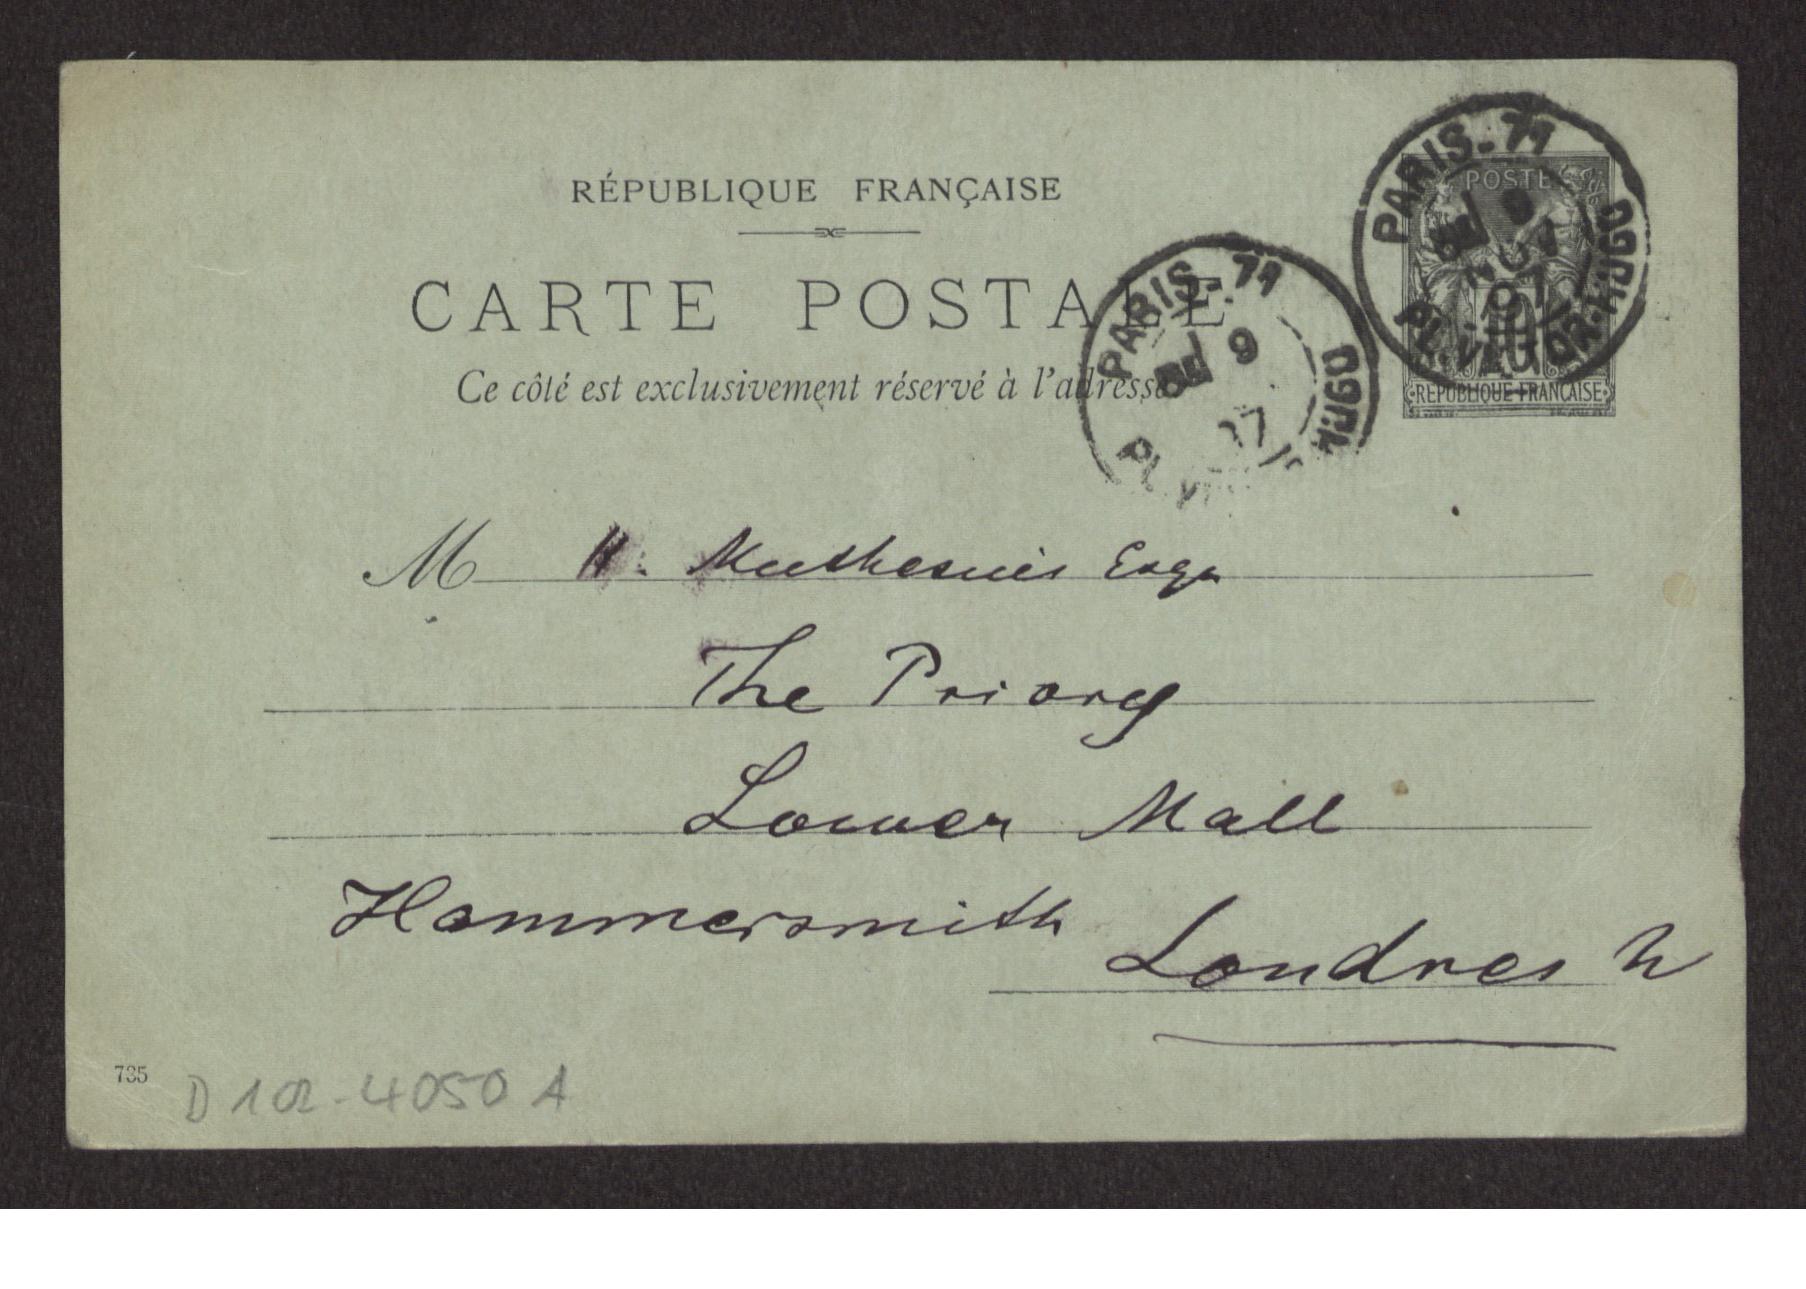 RÉPUBLIQUE FRANÇAISE
CARTE POSTALE
Ce côté est exclusivement réservé à l'adresse
PARIS-71
9
NOV
97
PL. VICTOR-HUGO
POSTES
10
RÉPUBLIQUE FRANÇAISE
PARIS-71
9
97
PL. V HUGO
M H. Muthesius Esqu
The Priory
Lower Mall
Hammersmith Londres W
735
D 102-4050 A